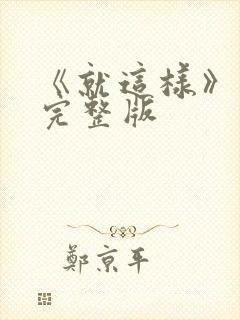 《就這樣》
完整版
鄭京平